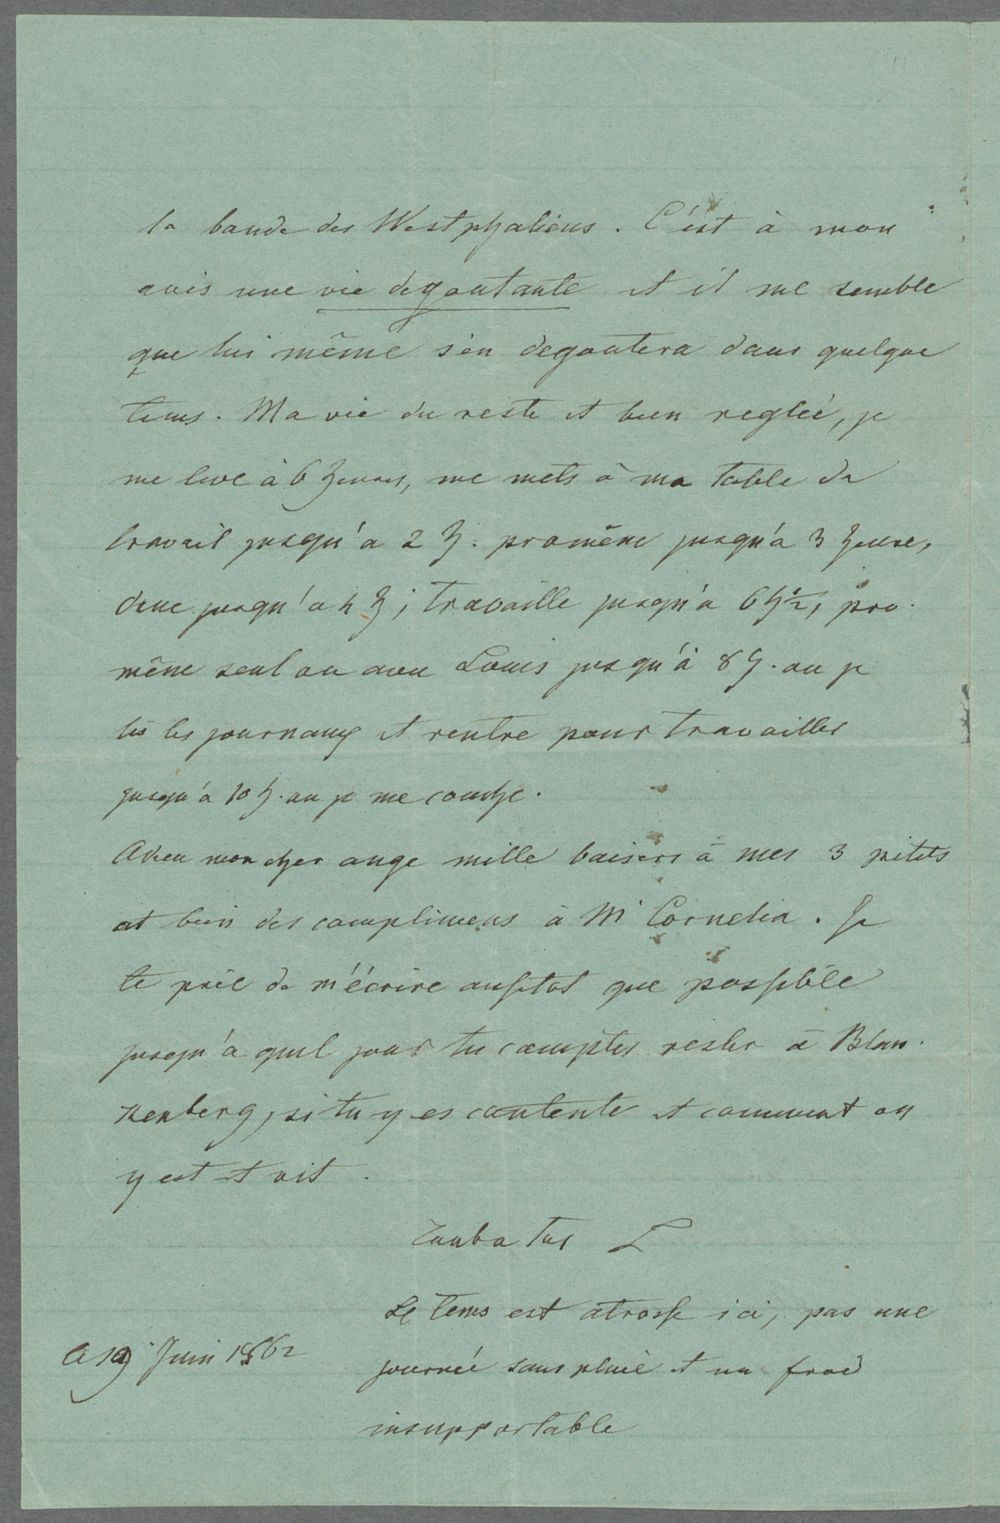 la bande des Westphaliens. C'est à mon
avis une vie degoutante et il me semble
que lui même s'en degoutera dans quelque
tems. Ma vie du reste et bien regleé, je
me leve à 6 heures, me mets à ma table de
travail jusqu'a 2 h. promène jusqu'a 3 heures,
dine jusqu'a 4 h; travaille jusqu'a 6 h ½, pro-
mène seul ou avec Louis jusqu'à 8 h. ou je
lis les journaux et rentre pour travailler
jusqu'a 10 h. ou je me couche.
Adieu mon cher ange mille baisers à mes 3 petits
et bien des complimens à M Cornelia. Je
te prie de m'écrire aussitot que possible
jusqu'a quel jour tu comptes rester à Blan-
kenberg, si tu y es contente et comment on
y est et vit.
L
Le tems est atrosse ici, pas une
A 19 Juin 1862
journeé sans pluie et un froid
insupportable